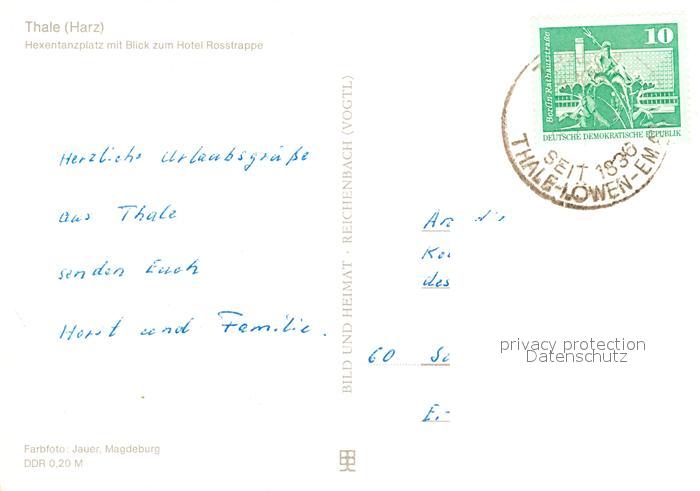 Thale (Harz)
Hexentanzplatz mit Blick zum Hotel Rosstrappe
10
Berlin-Rathausstraße
DEUTSCHE DEMOKRATISCHE REPUBLIK
SEIT 1836
THALE-LÖWEN-EM
Herzliche Urlaubsgrüße
aus Thale
senden Euch
Horst und Familie.
BILD UND HEIMAT · REICHENBACH (VOGTL)
An die
des
60
privacy protection
Datenschutz
Farbfoto: Jauer, Magdeburg
DDR 0,20 M